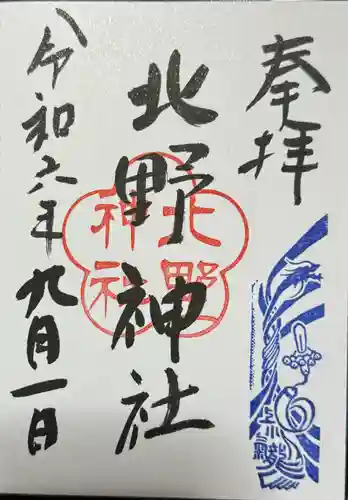 奉拝
北野神社
北野神社
令和六年九月一日